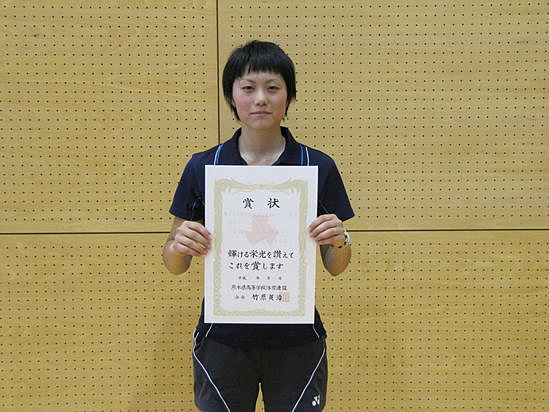 賞状
輝ける栄光を讃えて
これを賞します
平成 年 月 日
熊本県高等学校体育連盟
会長 竹原英治